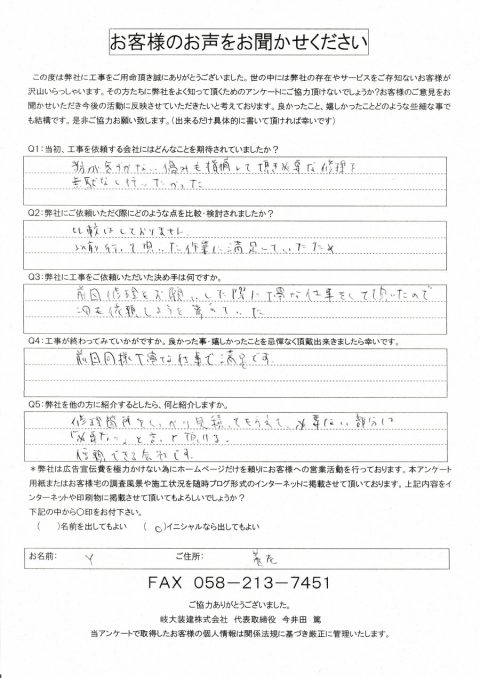 お客様のお声をお聞かせください
この度は弊社に工事をご用命頂き誠にありがとうございました。世の中には弊社の存在やサービスをご存知ないお客様が
沢山いらっしゃいます。その方たちに弊社をよく知って頂くためのアンケートにご協力頂けないでしょうか?お客様のご意見をお
聞かせいただき今後の活動に反映させていただきたいと考えております。良かったこと、嬉しかったことどのような些細な事で
も結構です。是非ご協力お願い致します。(出来るだけ具体的に書いて頂ければ幸いです)
Q1:当初、工事を依頼する会社にはどんなことを期待されていましたか?
私が気づかない傷みも指摘して頂き必要な修理を
無駄なく行いたかった
Q2:弊社にご依頼いただく際にどのような点を比較・検討されましたか?
比較はしておりません
以前行って頂いた作業に満足していたため
Q3:弊社に工事をご依頼いただいた決め手は何ですか。
前回修理をお願いした際に丁寧な仕事をして頂いたので
次も依頼しようと考えていた
Q4:工事が終わってみていかがですか。良かった事・嬉しかったことを忌憚なく頂戴出来ましたら幸いです。
前回同様丁寧な仕事で満足です
Q5:弊社を他の方に紹介するとしたら、何と紹介しますか。
修理箇所をしっかり見積ってもらえて、必要ない部分は
「必要ない」と言って頂ける。
信頼できる会社です
*弊社は広告宣伝費を極力かけない為にホームページだけを頼りにお客様への営業活動を行っております。本アンケート
用紙またはお客様宅の調査風景や施工状況を随時ブログ形式のインターネットに掲載させて頂いております。上記内容をイ
ンターネットや印刷物に掲載させて頂いてもよろしいでしょうか?
下記の中から○印をお付下さい。
( )名前を出してもよい ( ○ )イニシャルなら出してもよい
お名前: Y ご住所: 養老
FAX 058-213-7451
ご協力ありがとうございました。
岐大装建株式会社 代表取締役 今井田 篤
当アンケートで取得したお客様の個人情報は関係法規に基づき厳正に管理いたします。